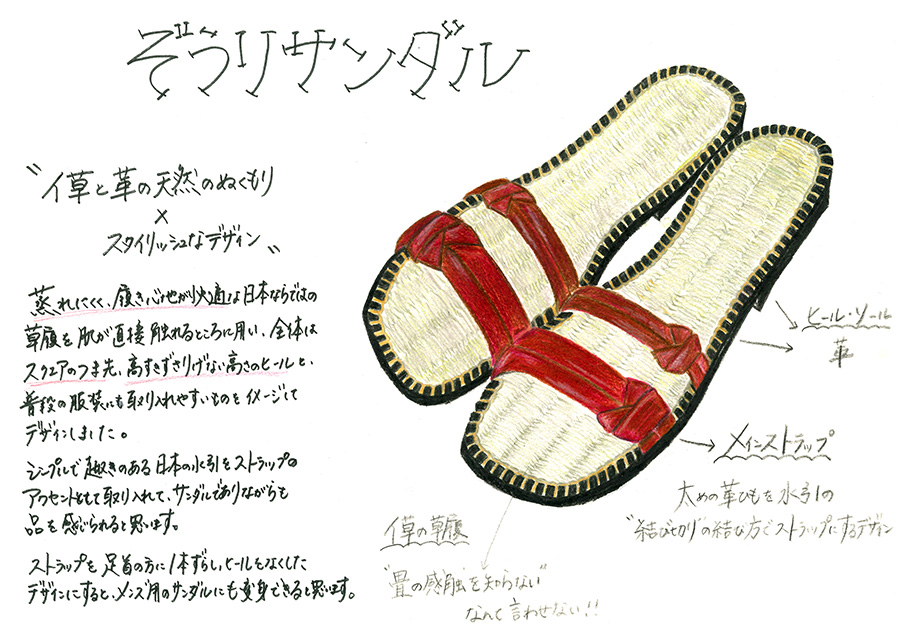 ぞうりサンダル
〝イ草と革の天然のぬくもり
×
スタイリッシュなデザイン〟
蒸れにくく、履き心地が快適な日本ならではの
草履を肌が直接触れるところに用い、全体は
スクエアのつま先、高すぎずさりげない高さのヒールと、
普段の服装にも取り入れやすいものをイメージして
デザインしました。
シンプルで趣きのある日本の水引をストラップの
アクセントとして取り入れて、サンダルでありながらも
品を感じられると思います。
ストラップを足首の方に1本ずらし、ヒールをなくした
デザインにすると、メンズ用のサンダルにも変身できると思います。
ヒール・ソール
革
メインストラップ
太めの革ひもを水引の
"結び切り"の結び方でストラップにするデザイン
イ草の草履
"畳の感触を知らない"
なんて言わせない!!